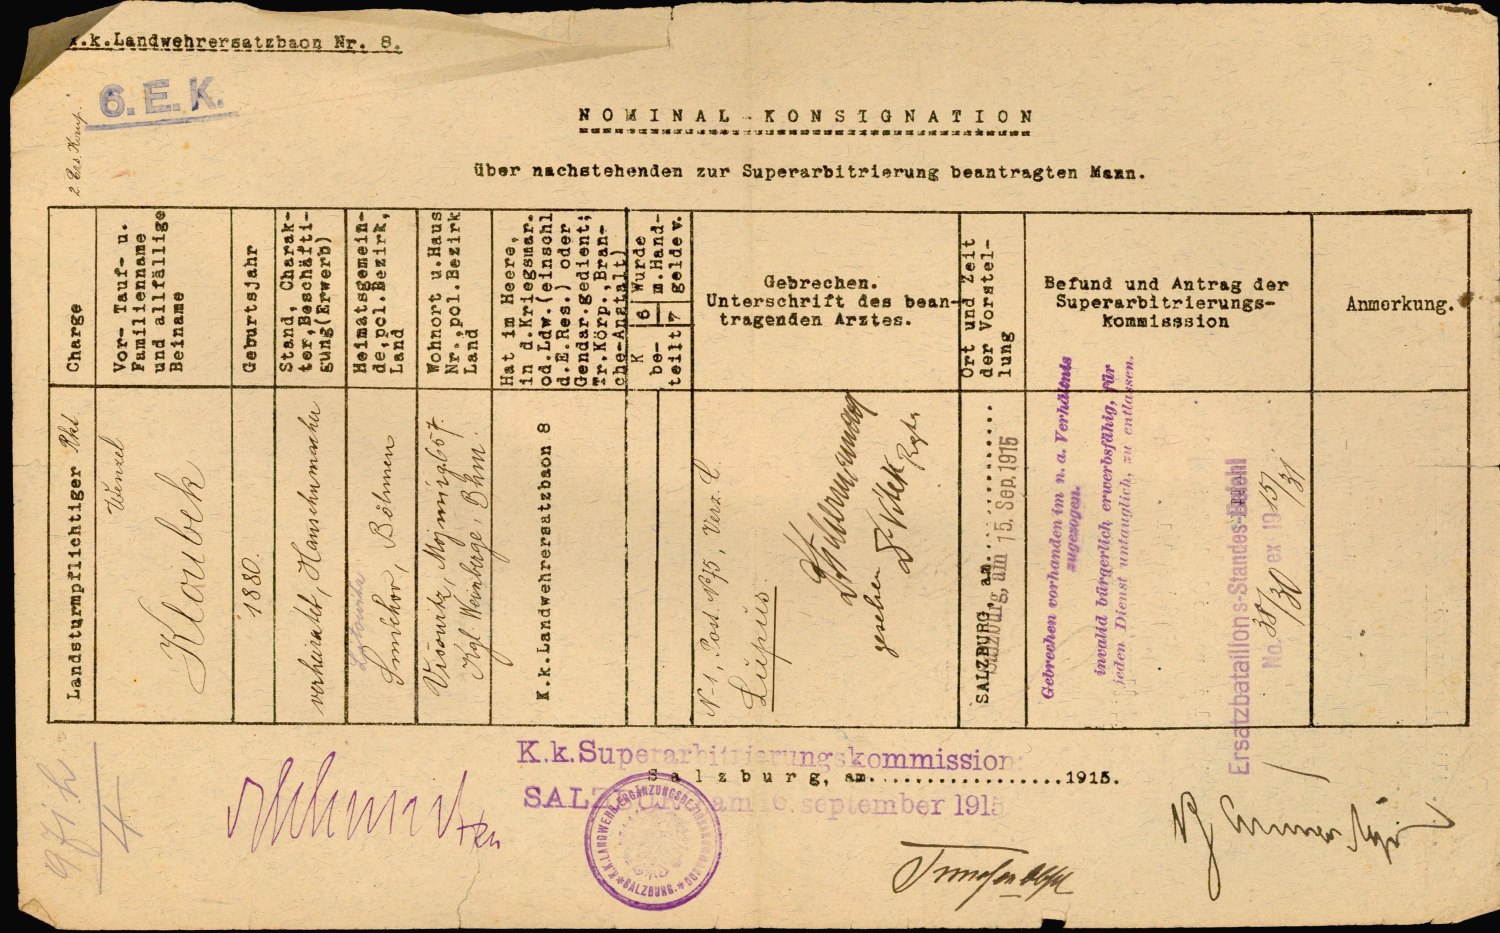 k.k.Landwehrersatzbaon Nr. 8.
6. E. K.
2. Ers. Komp.
NOMINAL-KONSIGNATION
über nachstehenden zur Superarbitrierung beantragten Mann.
Charge
Vor- Tauf- u.
Familienname
und allfällige
Beiname
Geburtsjahr
Stand, Charak-
ter,Beschäfti-
gung(Erwerb)
Heimatsgemein-
de,pol.Bezirk,
Land
Wohnort u.Haus
Nr.,pol.Bezirk
Land
Hat im Heere,
in d.Kriegsmar.
od.Ldw.(einschl
d.E.Res.) oder
Gendar.gedient;
Tr.Körp.,Bran-
che-Anstalt)
Wurde
m.Hand-
gelde v.
6
7
K
be-
teilt
Gebrechen.
Unterschrift des bean-
tragenden Arztes.
Ort und Zeit
der Vorstel-
lung
Befund und Antrag der
Superarbitrierungs-
kommisssion
Anmerkung.
Landsturmpflichtiger Rkt.
Wenzel
Kloubek
1880.
verheiratet,
Böhmen
Kgl. Weinberge, Bhm.
K.k.Landwehrersatzbaon 8
N-1, Post. N 75, Verz. C.
Lupus.
gesehen
SALZBURG, am..............
Salzburg, am 15. Sep. 1915
Gebrechen vorhanden im n. a. Verhältnis
zugezogen.
invalid bürgerlich erwerbsfähig, für
jeden Dienst untauglich, zu entlassen.
Ersatzbataillons-Standes-Befehl
No. 30 ex 1915
K.k.Superarbitrierungskommission
Salzburg, am...................1915.
SALZBURG am 16. september 1915
K.K.LANDWEHR-ERGÄNZUNGSBEZIRKSKOMMANDO
*SALZBURG.*